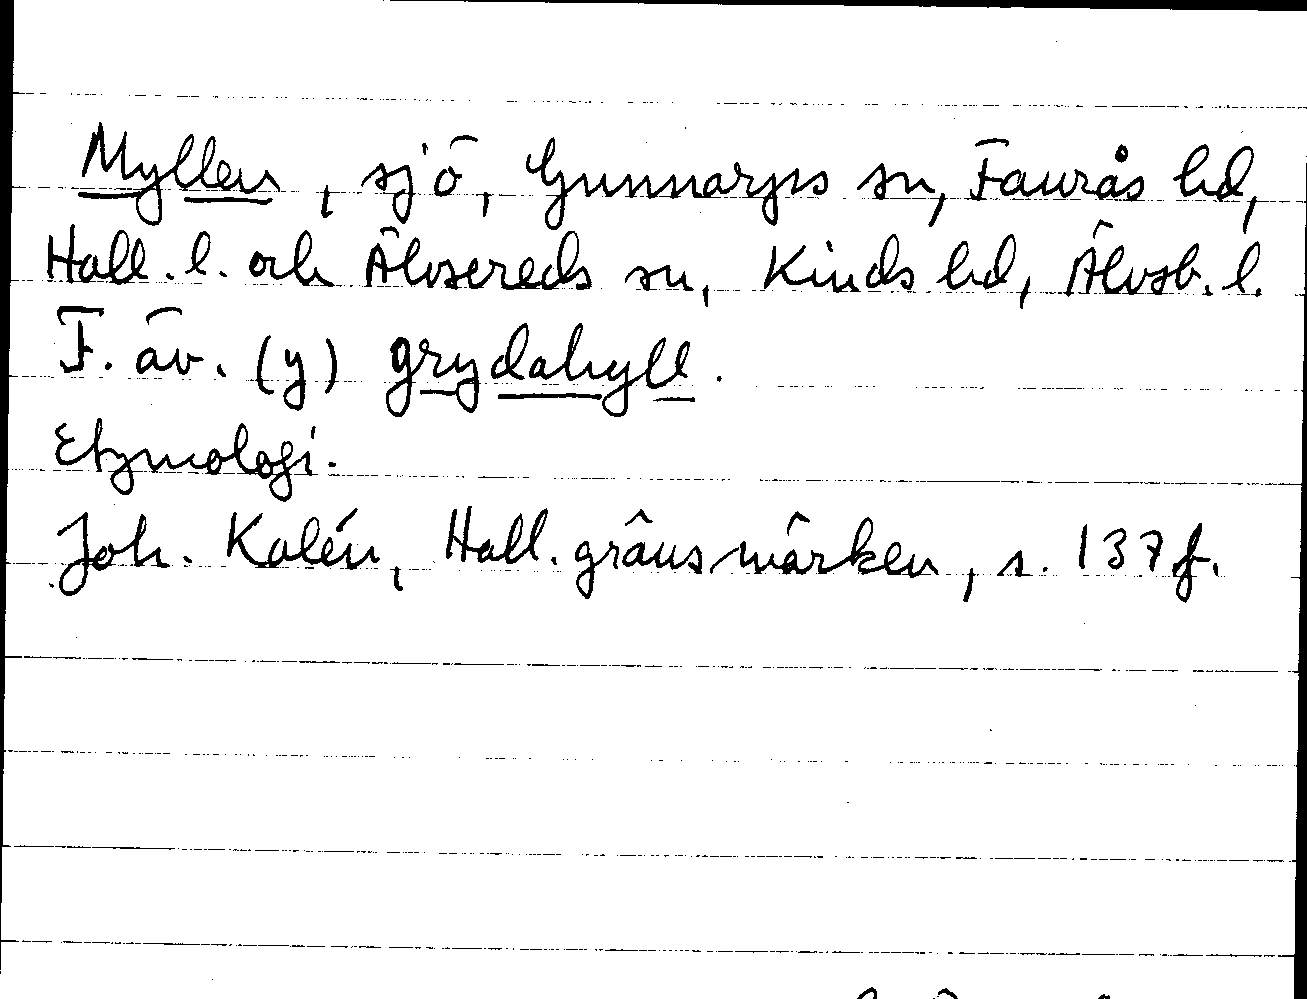 Myllen, sjö, Gunnarps sn, Faurås hd,
Hall. l. och Älvsereds sn, Kinds hd, Älvsb. l.
F. äv. (y) grydahyll.
Etymologi.
Joh. Kalén, Hall. gränsmärken, s. 137 f.